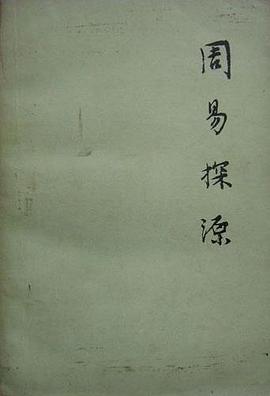 周易探源